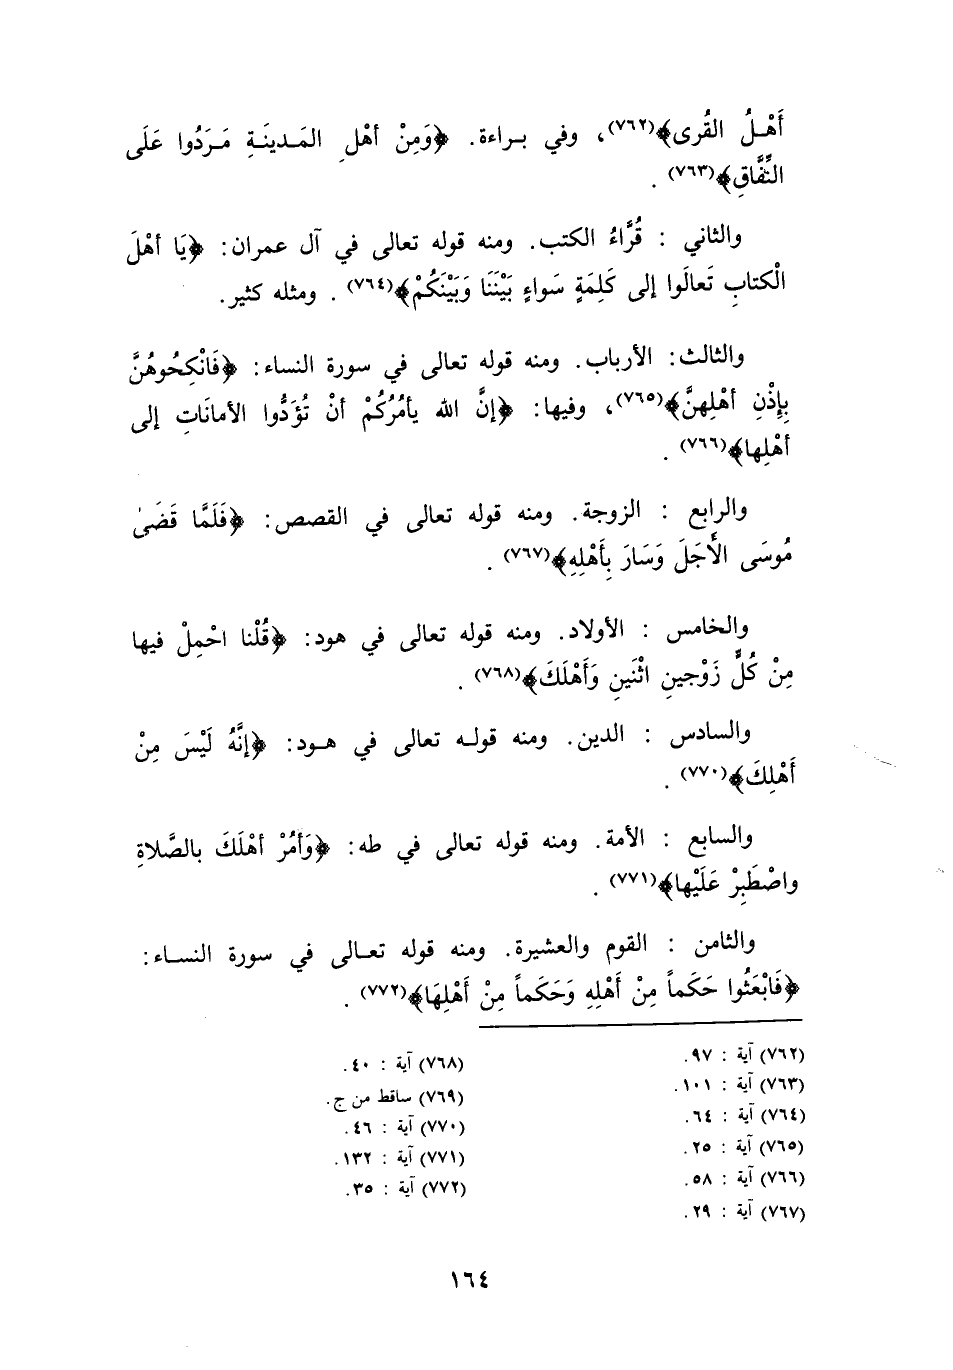 أَهْـلُ القُرى﴾(٧٦٢)، وفي بـراءة. ﴿وَمِنْ أهْلِ المَـدينَـةِ مَـرَدُوا عَلَى
النِّفَّاقِ﴾(٧٦٣) .
والثاني : قُرَّاءُ الكتب. ومنه قوله تعالى في آل عمران: ﴿يَا أهْلَ
الْكتابِ تَعالَوا إلى كَلِمَةٍ سَواءٍ بَيْنَنَا وَبَيْنَكُمْ﴾(٧٦٤) . ومثله كثير.
والثالث: الأرباب. ومنه قوله تعالى في سورة النساء: ﴿فَانْكِحُوهُنَّ
بِإِذْنِ أهْلِهنَّ﴾(٧٦٥)، وفيها: ﴿إنَّ الله يأمُرُكُمْ أنْ تُؤَدُّوا الأمانَاتِ إلى
أهْلِها﴾(٧٦٦) .
والرابع : الزوجة. ومنه قوله تعالى في القصص: ﴿فَلَمَّا قَضَىٰ
مُوسَى الأَجَلَ وَسَارَ بِأَهْلِهِ﴾(٧٦٧) .
والخامس : الأولاد. ومنه قوله تعالى في هود: ﴿قُلْنا احْمِلْ فيها
مِنْ كُلٍّ زَوْجينِ اثْنَينِ وَأَهْلَكَ﴾(٧٦٨) .
والسادس : الدين. ومنه قولـه تعالى في هـود: ﴿إنَّهُ لَيْسَ مِنْ
أَهْلِكَ﴾(٧٧٠) .
والسابع : الأمة. ومنه قوله تعالى في طه: ﴿وَأمُرْ أهْلَكَ بالصَّلاةِ
واصْطَبِرْ عَلَيْها﴾(٧٧١) .
والثامن : القوم والعشيرة. ومنه قوله تعـالى في سورة النسـاء:
﴿فَابْعَثُوا حَكَماً مِنْ أَهْلِهِ وَحَكَماً مِنْ أَهْلِهَا﴾(٧٧٢) .
(٧٦٢) آية : ٩٧.
(٧٦٣) آية : ١٠١.
(٧٦٤) آية : ٦٤.
(٧٦٥) آية : ٢٥.
(٧٦٦) آية : ٥٨.
(٧٦٧) آية : ٢٩.
(٧٦٨) آية : ٤٠.
(٧٦٩) ساقط من ج.
(٧٧٠) آية : ٤٦.
(٧٧١) آية : ١٣٢.
(٧٧٢) آية : ٣٥.
١٦٤